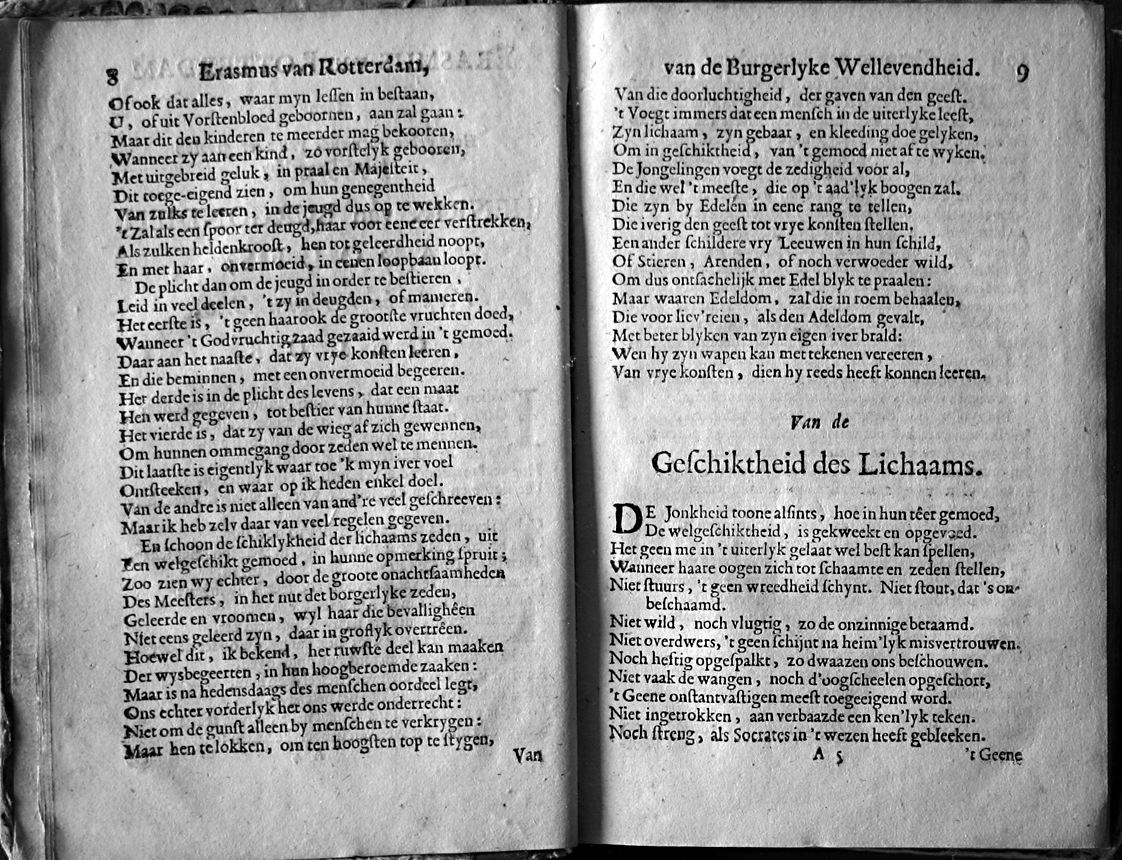 8 Erasmus van Rotterdam,
Of ook dat alles, waar myn leſſen in beſtaan,
U, of uit Vorſtenbloed geboornen, aan zal gaan:
Maar dit den kinderen te meerder mag bekooren,
Wanneer zy aan een kind, zo vorſtelyk gebooren,
Met uitgebreid geluk, in praal en Majeſteit,
Dit toege-eigend zien, om hun genegentheid
Van zulks te leeren, in de jeugd dus op te wekken.
't Zal als een ſpoor ter deugd, haar voor eene eer verſtrekken,
Als zulken heldenkrooſt, hen tot geleerdheid noopt,
En met haar, onvermoeid, in eenen loopbaan loopt.
De plicht dan om de jeugd in order te beſtieren,
Leid in veel deelen, 't zy in deugden, of manieren.
Het eerſte is, 't geen haar ook de grootſte vruchten doed,
Wanneer 't Godvruchtig zaad gezaaid werd in 't gemoed.
Daar aan het naaſte, dat zy vrye konſten leeren,
En die beminnen, met een onvermoeid begeeren.
Het derde is in de plicht des levens, dat een maat
Hen werd gegeven, tot beſtier van hunne ſtaat.
Het vierde is, dat zy van de wieg af zich gewennen,
Om hunnen ommegang door zeden wel te mennen.
Dit laatſte is eigentlyk waar toe 'k myn iver voel
Ontſteeken, en waar op ik heden enkel doel.
Van de andre is niet alleen van and're veel geſchreeven:
Maar ik heb zelv daar van veel regelen gegeven.
En ſchoon de ſchiklykheid der lichaams zeden, uit
Een welgeſchikt gemoed, in hunne opmerking ſpruit;
Zoo zien wy echter, door de groote onachtſaamheden
Des Meeſters, in het nut det borgerlyke zeden,
Geleerde en vroomen, wyl haar die bevallighêen
Niet eens geleerd zyn, daar in groflyk overtrêen.
Hoewel dit, ik bekend, het ruwſte deel kan maaken
Der wysbegeerten, in hun hoogberoemde zaaken:
Maar is na hedensdaags des menſchen oordeel legt,
Ons echter vorderlyk het ons werde onderrecht:
Niet om de gunſt alleen by menſchen te verkrygen:
Maar hen te lokken, om ten hoogſten top te ſtygen,
Van
van de Burgerlyke Wellevendheid. 9
Van die doorluchtigheid, der gaven van den geeſt.
't Voegt immers dat een menſch in de uiterlyke leeſt,
Zyn lichaam, zyn gebaar, en kleeding doe gelyken,
Om in geſchiktheid, van 't gemoed niet af te wyken.
De Jongelingen voegt de zedigheid voor al,
En die wel 't meeſte, die op 't aad'lyk boogen zal.
Die zyn by Edelen in eene rang te tellen,
Die iverig den geeſt tot vrye konſten ſtellen.
Een ander ſchildere vry Leeuwen in hun ſchild,
Of Stieren, Arenden, of noch verwoeder wild,
Om dus ontſachelijk met Edel blyk te praalen:
Maar waaren Edeldom, zal die in roem behaalen,
Die voor liev'reien, als den Adeldom gevalt,
Met beter blyken van zyn eigen iver brald:
Wen hy zyn wapen kan met tekenen vereeren,
Van vrye konſten, dien hy reeds heeft konnen leeren.
Van de
Geſchiktheid des Lichaams.
DE Jonkheid toone alſints, hoe in hun têer gemoed,
De welgeſchiktheid, is gekweekt en opgevoed.
Het geen me in 't uiterlyk gelaat wel beſt kan ſpellen,
Wanneer haare oogen zich tot ſchaamte en zeden ſtellen,
Niet ſtuurs, 't geen wreedheid ſchynt. Niet ſtout, dat 's on-
beſchaamd.
Niet wild, noch vlugtig, zo de onzinnige betaamd.
Niet overdwers, 't geen ſchijnt na heim'lyk misvertrouwen.
Noch heftig opgeſpalkt, zo dwaazen ons beſchouwen.
Niet vaak de wangen, noch d'oogſcheelen opgeſchort,
't Geene onſtantvaſtigen meeſt toegeeigend word.
Niet ingetrokken, aan verbaazde een ken'lyk teken.
Noch ſtreng, als Socrates in 't wezen heeft gebleeken.
A 5 't Geene